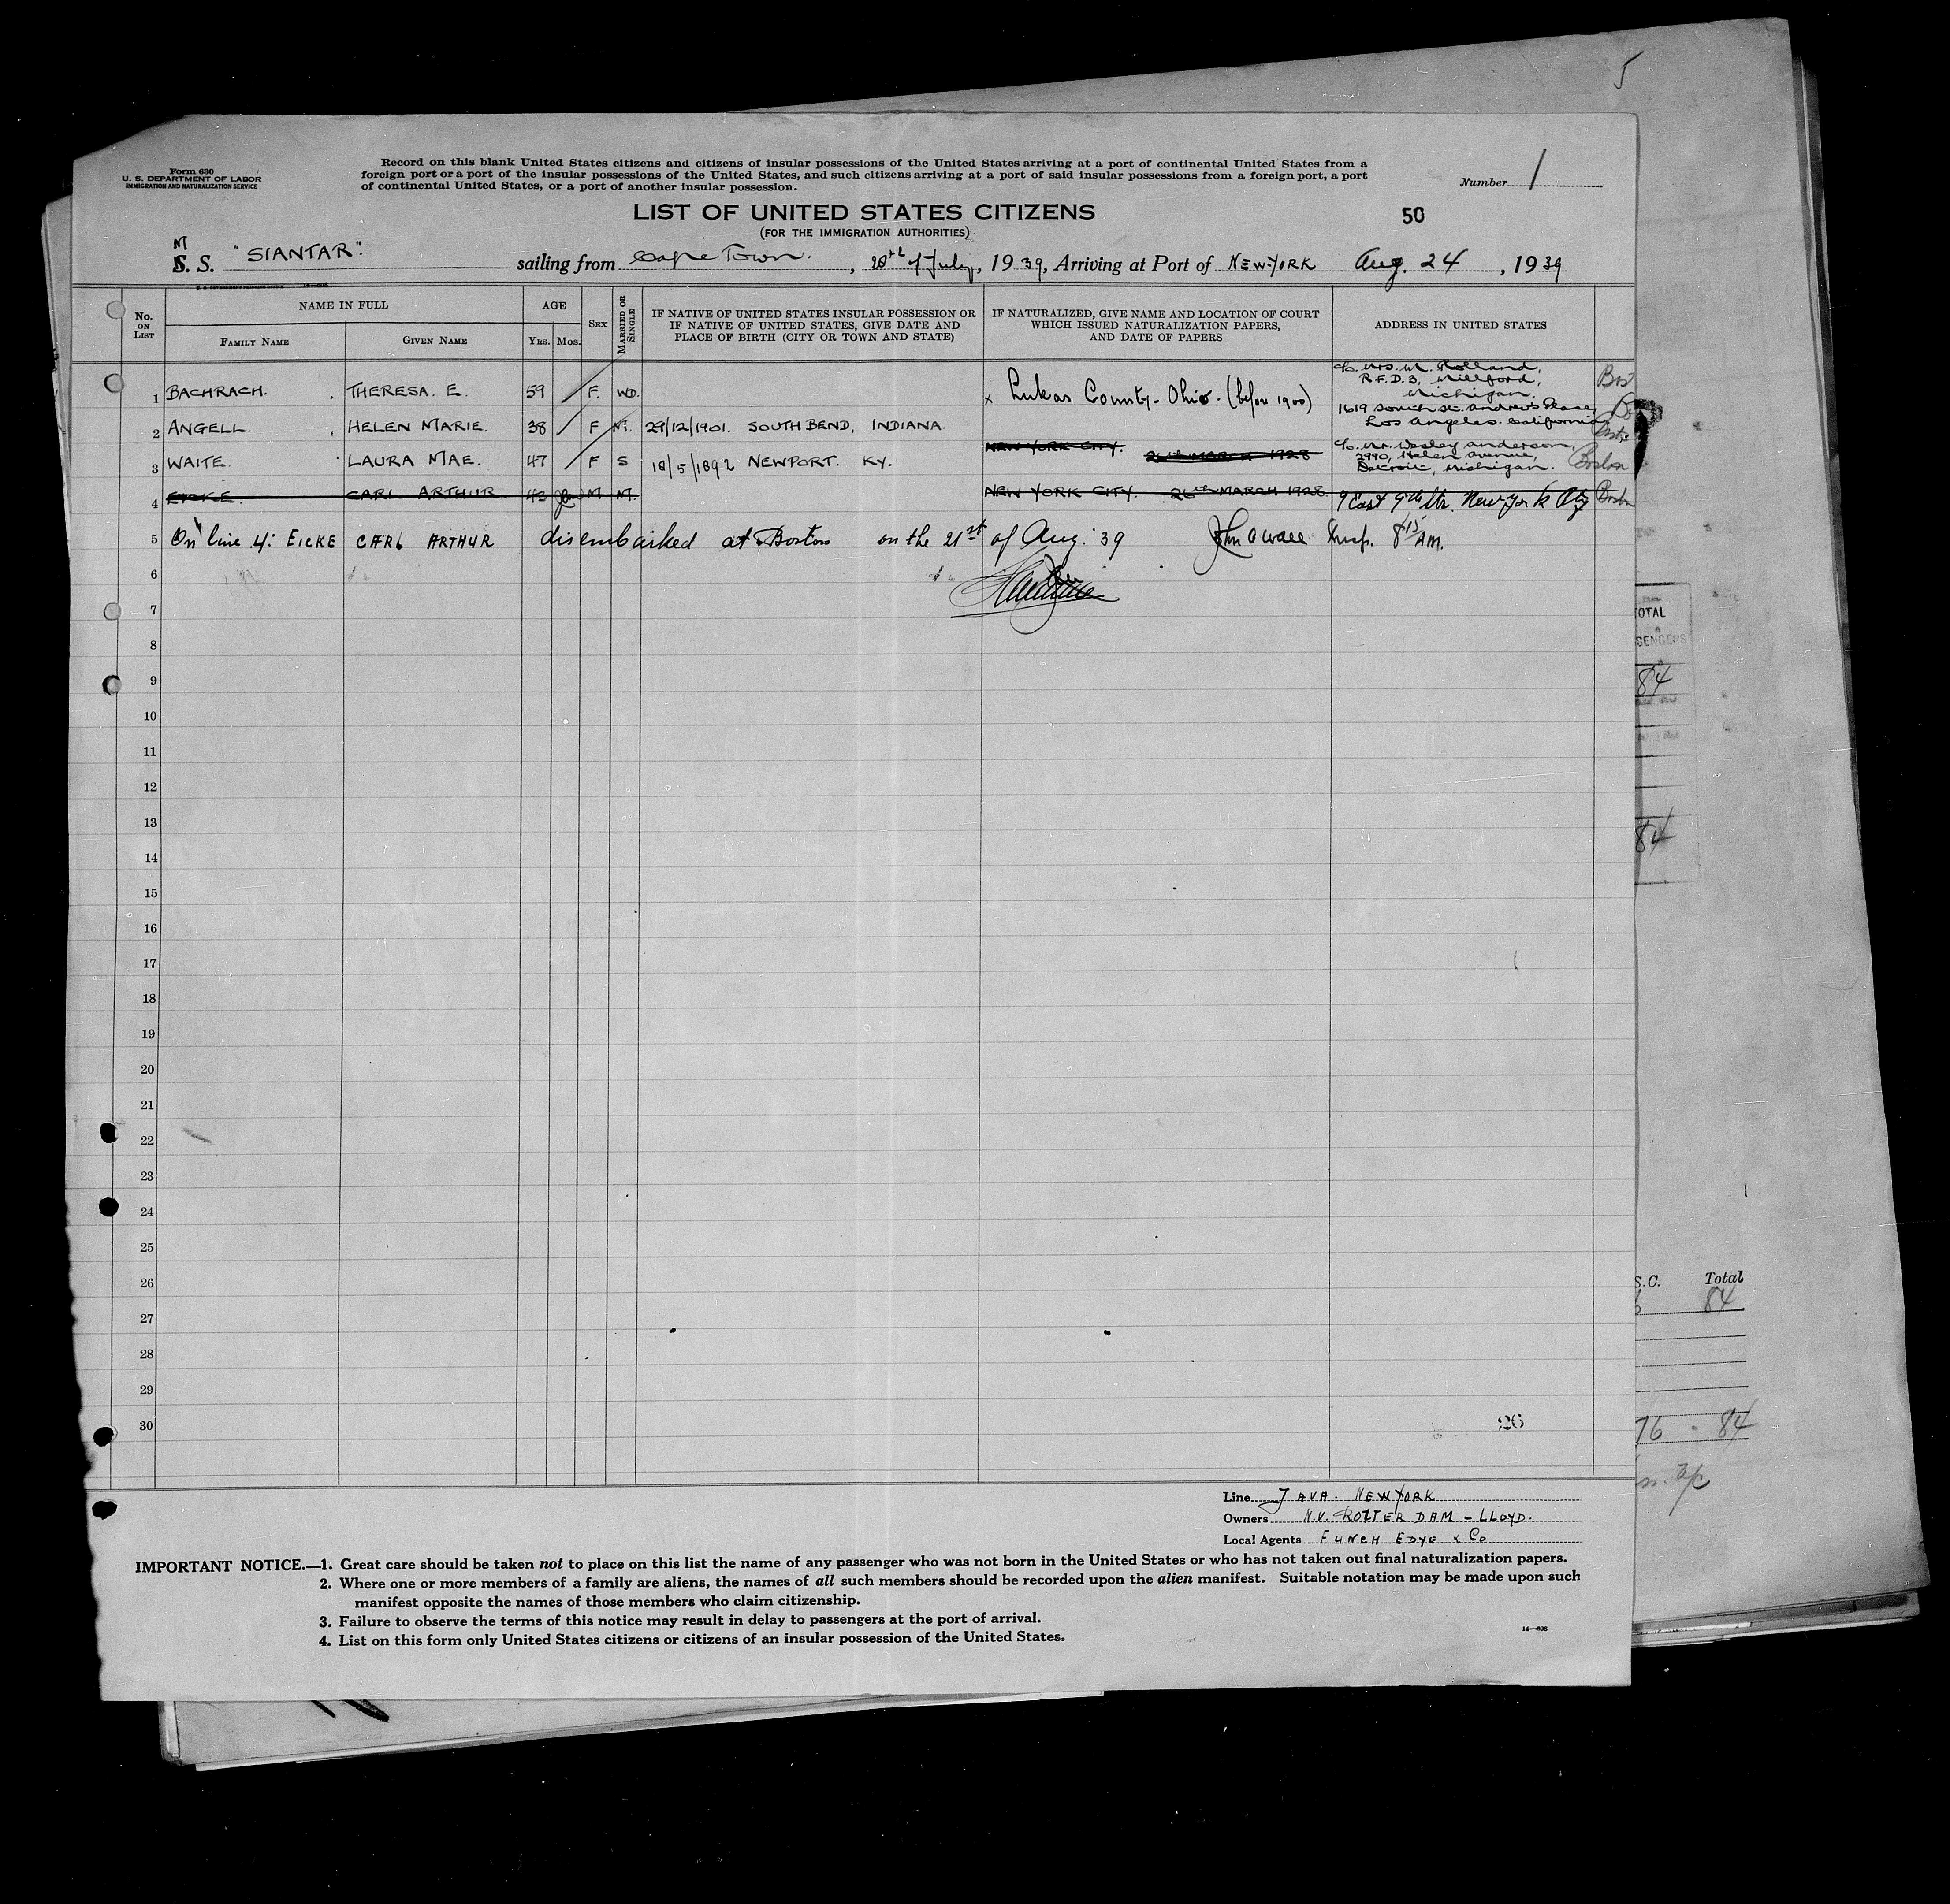 5
Form 630
U. S. DEPARTMENT OF LABOR
IMMIGRATION AND NATURALIZATION SERVICE
Record on this blank United States citizens and citizens of insular possessions of the United States arriving at a port of continental United States from a
foreign port or a port of the insular possessions of the United States, and such citizens arriving at a port of said insular possessions from a foreign port, a port
of continental United States, or a port of another insular possession.
Number 1
LIST OF UNITED STATES CITIZENS
50
(FOR THE IMMIGRATION AUTHORITIES)
M
S. S. "SIANTAR". sailing from Cape Town. , 28th of July, 1939, Arriving at Port of NEW-YORK Aug. 24 , 1939
No. ON LIST
NAME IN FULL
FAMILY NAME
GIVEN NAME
AGE
YRS. MOS.
SEX
MARRIED OR SINGLE
IF NATIVE OF UNITED STATES INSULAR POSSESSION OR
IF NATIVE OF UNITED STATES, GIVE DATE AND
PLACE OF BIRTH (CITY OR TOWN AND STATE)
IF NATURALIZED, GIVE NAME AND LOCATION OF COURT
WHICH ISSUED NATURALIZATION PAPERS,
AND DATE OF PAPERS
ADDRESS IN UNITED STATES
1 BACHRACH. THERESA. E. 59 F. WD. x Lukas County - Ohio. (before 1900) c/o. Mrs. M. Rolland,
R.F.D. 3, Millford,
Michigan. Bos
2 ANGELL. HELEN MARIE. 38 F M. 29/12/1901. SOUTH BEND, INDIANA. 1619 South St. Andrews Place,
Los Angeles. California
3 WAITE. LAURA MAE. 47 F S 18/5/1892 NEWPORT. KY. NEW YORK CITY. 26th MARCH 1928 c/o. Mr. Wesley Anderson,
2990, Helen Avenue,
Detroit, Michigan. Boston
4 EICKE. CARL ARTHUR 43 M M. NEW YORK CITY. 26th MARCH 1928. 9 East 9th Str. New York City Boston
5 On line 4: EICKE CARL ARTHUR disembarked at Boston on the 21st of Aug. 39 Insp. 8 15 AM.
6
7
8
9
10
11
12
13
14
15
16
17
18
19
20
21
22
23
24
25
26
27
28
29
30
26
Line JAVA. NEW YORK
Owners N.V. ROTTERDAM - LLOYD.
Local Agents FUNCH EDYE & Co
IMPORTANT NOTICE.—1. Great care should be taken not to place on this list the name of any passenger who was not born in the United States or who has not taken out final naturalization papers.
2. Where one or more members of a family are aliens, the names of all such members should be recorded upon the alien manifest. Suitable notation may be made upon such
manifest opposite the names of those members who claim citizenship.
3. Failure to observe the terms of this notice may result in delay to passengers at the port of arrival.
4. List on this form only United States citizens or citizens of an insular possession of the United States.
14—608
OTAL
SENGERS
84
84
S.C. Total
84
76 - 84